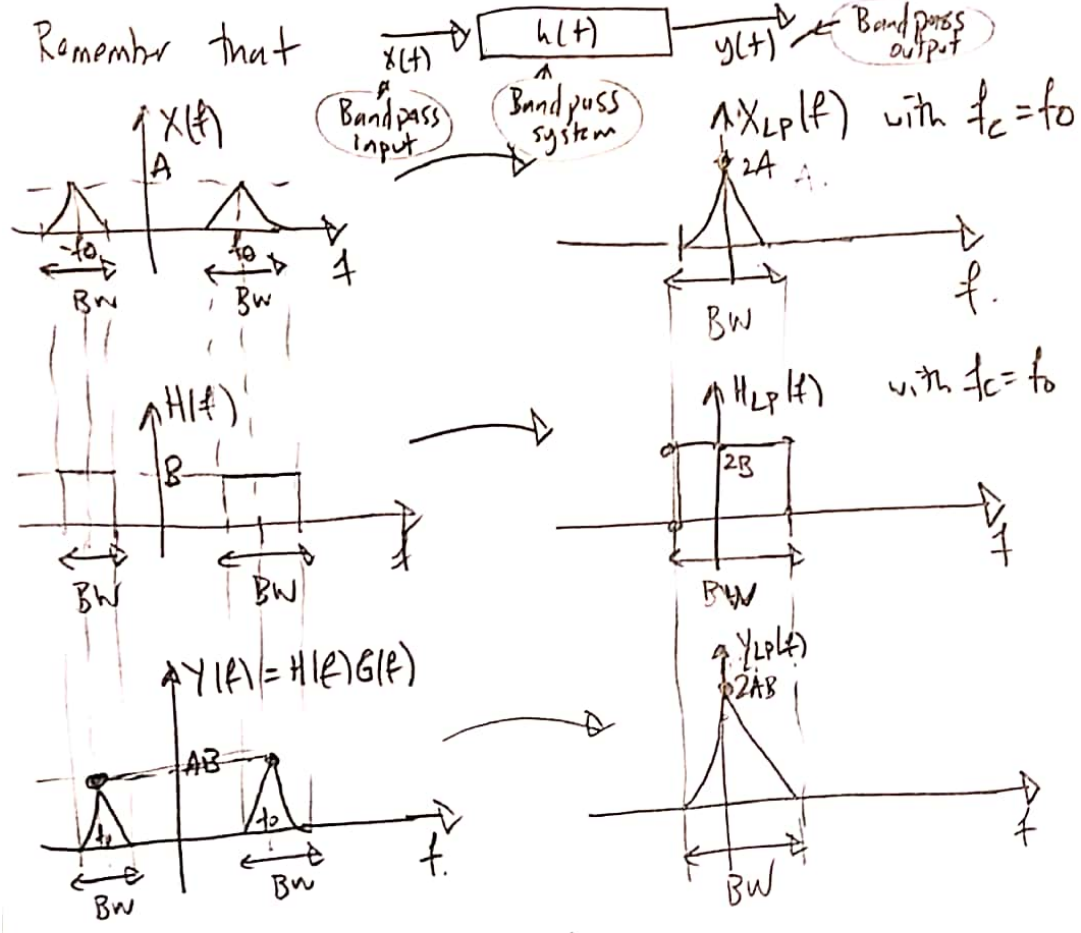 Remember that x(t) h(t) y(t) Bandpass output
Bandpass input
Bandpass system
X(f)
A
-f0 f0 f
BW BW
XLP(f) with fc = f0
2A A.
f.
BW
H(f)
B
f
BW BW
HLP(f) with fc = f0
2B
f
BW
Y(f) = H(f)G(f)
AB
f0 f0 f.
BW BW
YLP(f)
2AB
f
BW